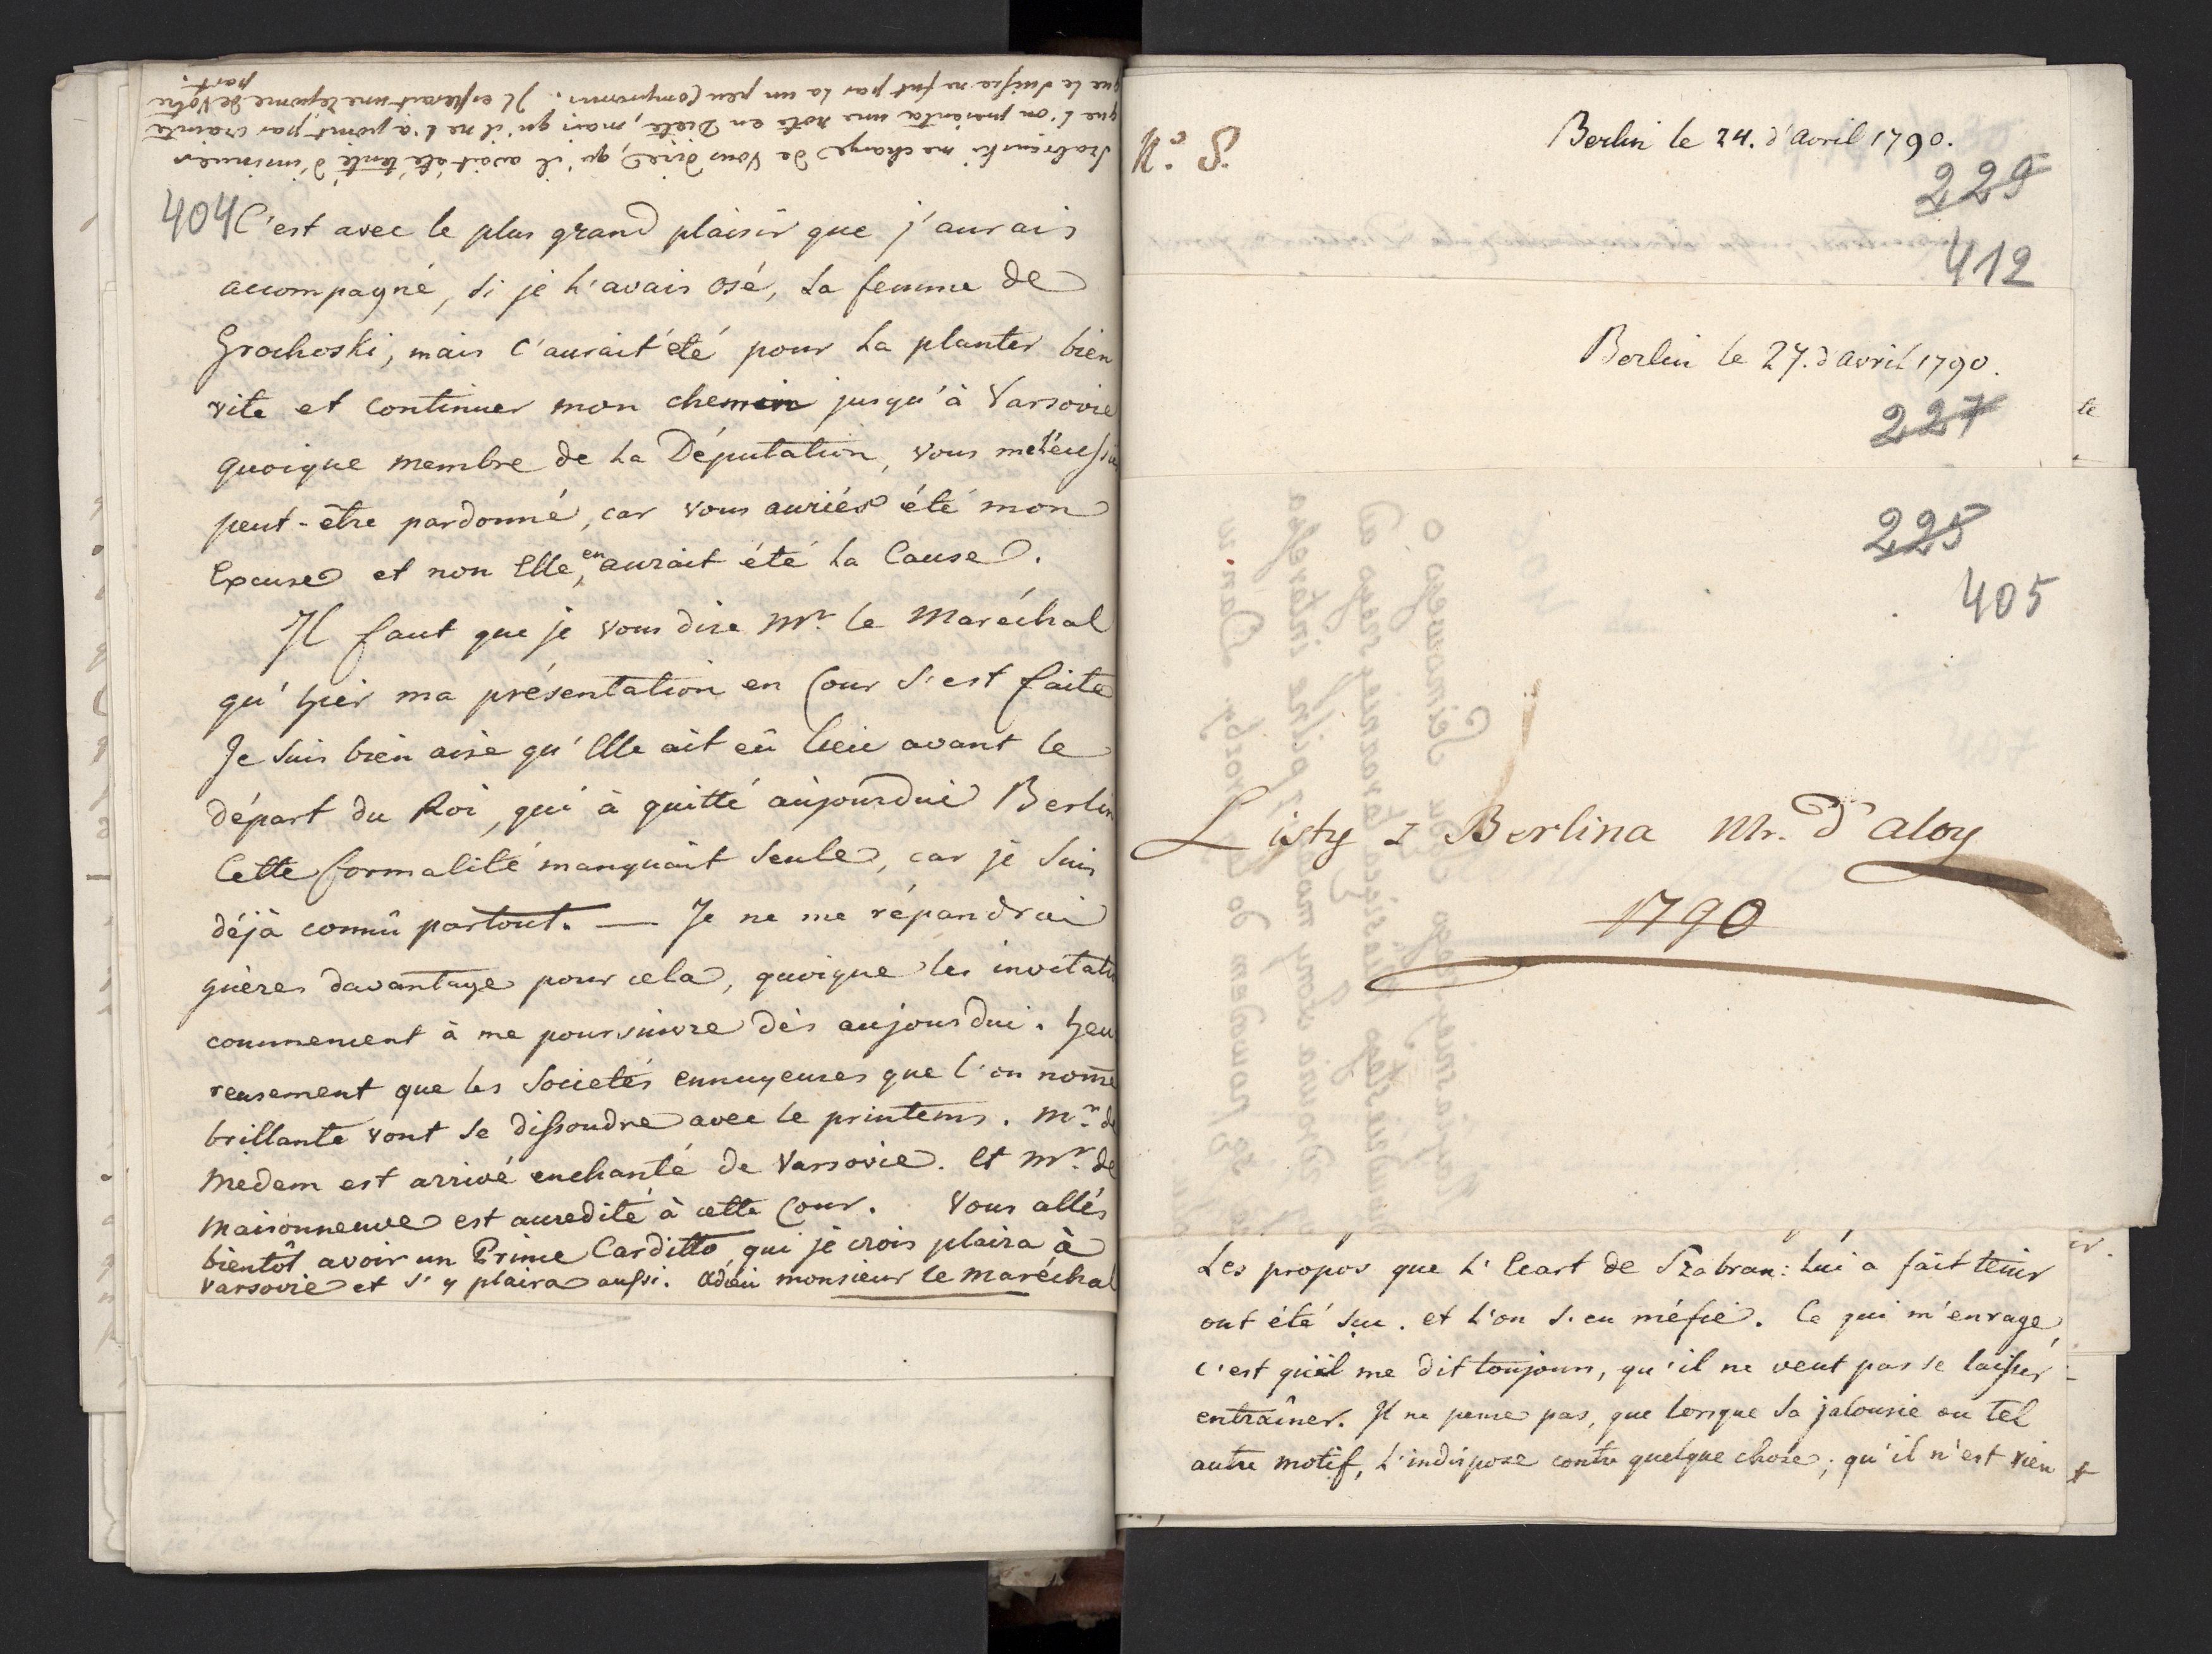 Szabienski me charge de Vous dire, qu'il avait été tenté d'insinuer
que l'on présenta une note en Diète, mais qu'il ne l'a point, par crainte
que le Suisse ne fut par la un peu Compromis. Il espérait une réponse de Votre
part.
404
C'est avec le plus grand plaisir que j'aurais
accompagné, si je l'avais osé, la femme de
Grochoski, mais c'aurait été pour la planter bien
vite et continuer mon chemin jusqu'à Varsovie
quoique membre de la Députation, vous me l'eussie
peut-être pardonné, car vous auriés été mon
Excuse et non Elle, en aurait été la Cause.
Il faut que je vous dise Mr. le Maréchal
qu'hier ma présentation en Cour s'est faite
Je suis bien aise qu'Elle ait eû lieu avant le
départ du Roi, qui à quitté aujourdui Berlin
Cette formalité manquait seule, car je suis
déjà connû partout. — Je ne me répandrai
guères davantage pour cela, quoique les invitati
commencent à me poursuivre dès aujourdui. heu
reusement que les Societés ennuyeuses que l'on nome
brillante vont se dissoudre avec le printems. Mr. de
Medem est arrivé enchanté de Varsovie. Et Mr. de
Maisonneuve est accredité à cette Cour. Vous allés
bientôt avoir un Prince Carditto, qui je crois plaira à
Varsovie et s'y plaira aussi. Adieu monsieur le Maréchal
N.o 8.
Berlin le 24. d'Avril 1790.
229
412
Berlin le 27. d'avril 1790.
227
te
225
405
Listy z Berlina Mr. d'aloy
1790
Les propos que L'Ecart de Szabran: lui a fait tenir
ont été su. et l'on s'en méfie. Ce qui m'enrage,
c'est qu'il me dit toujours, qu'il ne veut pas se laisser
entraîner. Il ne pense pas, que lorsque sa jalousie ou tel
autre motif, l'indispose contre quelque chose; qu'il n'est rien